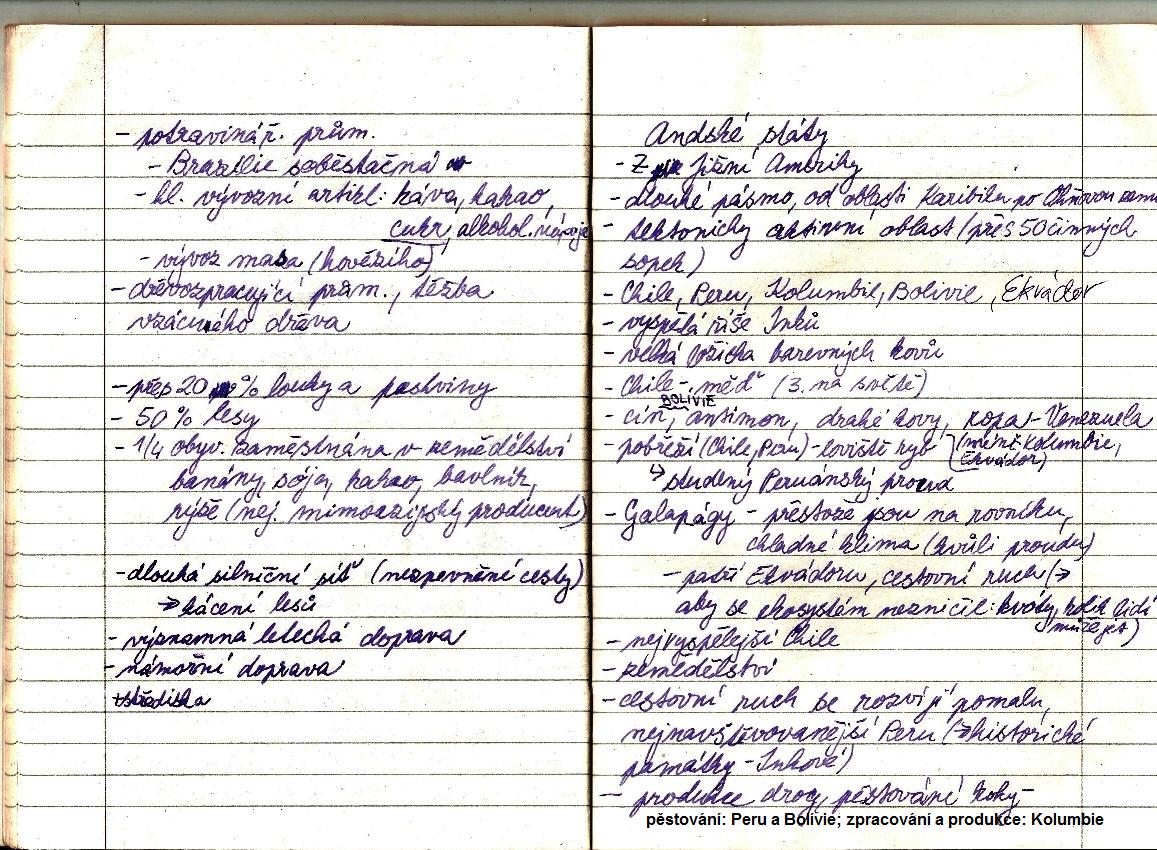 - potravinář. prům.
- Brazílie soběstačná
- hl. vývozní artikl: káva, kakao,
cukr, alkohol. nápoje
- vývoz masa (hovězího)
- dřevozpracující prům., těžba
vzácného dřeva
- přes 20 % louky a pastviny
- 50 % lesy
- 1/4 obyv. zaměstnána v zemědělství
banány, sója, kakao, bavlník,
rýže (nej. mimoasijský producent)
- dlouhá silniční síť (nezpevnění cesty)
→ kácení lesů
- významná letecká doprava
- námořní doprava
střediska
Andské státy
- Z Jižní Ameriky
- dlouhé pásmo, od oblasti Karibiku po Ohňovou zemi
- tektonicky aktivní oblast (přes 50 činných
sopek)
- Chile, Peru, Kolumbie, Bolívie, Ekvádor
- vyspělá říše Inků
- velká ložiska barevných kovů
- Chile - měď (3. na světě)
BOLÍVIE
- cín, antimon, drahé kovy, ropa - Venezuela
- pobřeží (Chile, Peru) - loviště ryb (méně Kolumbie,
Ekvádor)
↳ studený Peruánský proud
- Galapágy - přestože jsou na rovníku,
chladné klima (kvůli proudu)
- patří Ekvádoru, cestovní ruch (→
aby se ekosystém nezničil: kvóty, kolik lidí
může jet)
- nejvyspělejší Chile
- zemědělství
- cestovní ruch se rozvíjí pomalu,
nejnavštěvovanější Peru (→ historické
památky - Inkové)
- produkce drog, pěstování koky -
pěstování: Peru a Bolívie; zpracování a produkce: Kolumbie